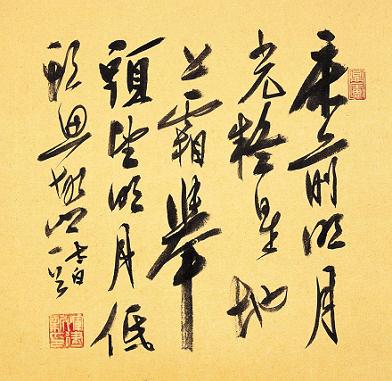 床前明月
光疑是地
上霜舉
頭望明月低
頭思故鄉